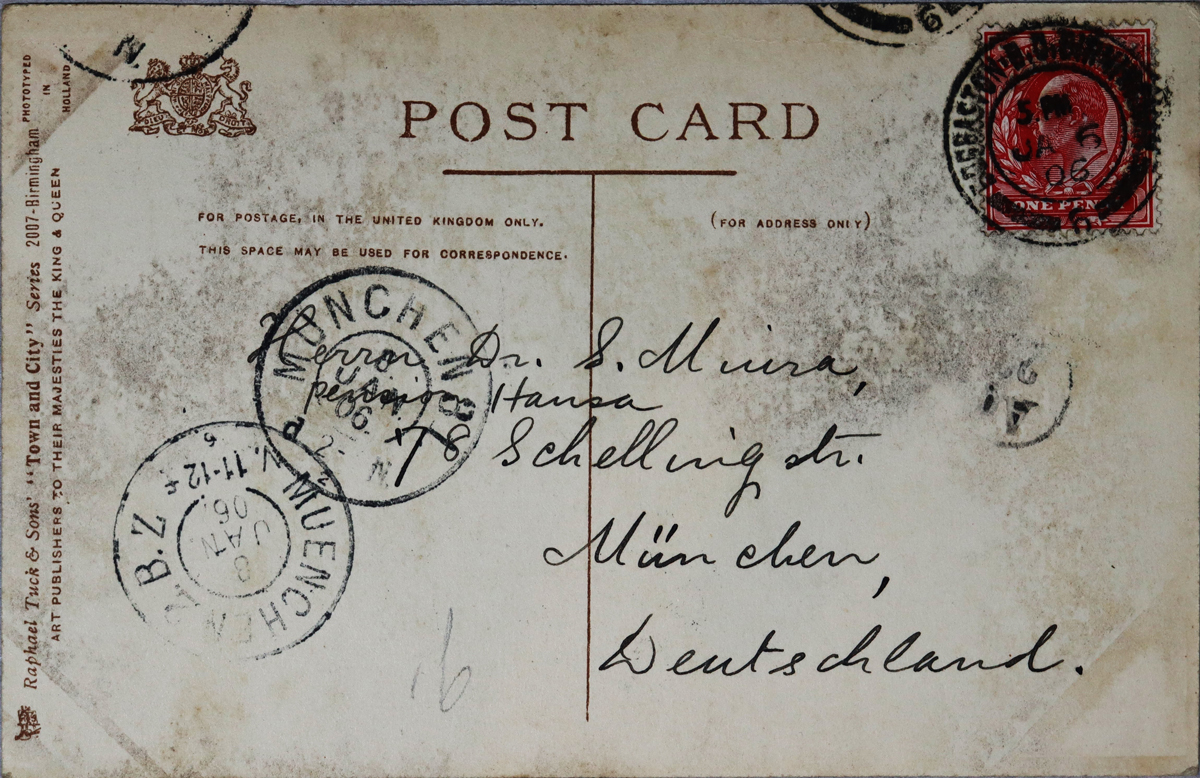 N.
PHOTOTYPED
IN
HOLLAND
Raphael Tuck & Sons' "Town and City" Series 2007-Birmingham
ART PUBLISHERS TO THEIR MAJESTIES THE KING & QUEEN
DIEU ET MON DROIT
POST CARD
FOR POSTAGE, IN THE UNITED KINGDOM ONLY.
THIS SPACE MAY BE USED FOR CORRESPONDENCE.
(FOR ADDRESS ONLY)
5. PM
JA 5
06
ONE PENNY
Herrn Dr. S. Miura,
Pension Hansa
78 Schelling str.
München,
Deutschland.
MÜNCHEN
JAN
06
MUENCHEN
B.Z
V. 11-12
8
JAN
06